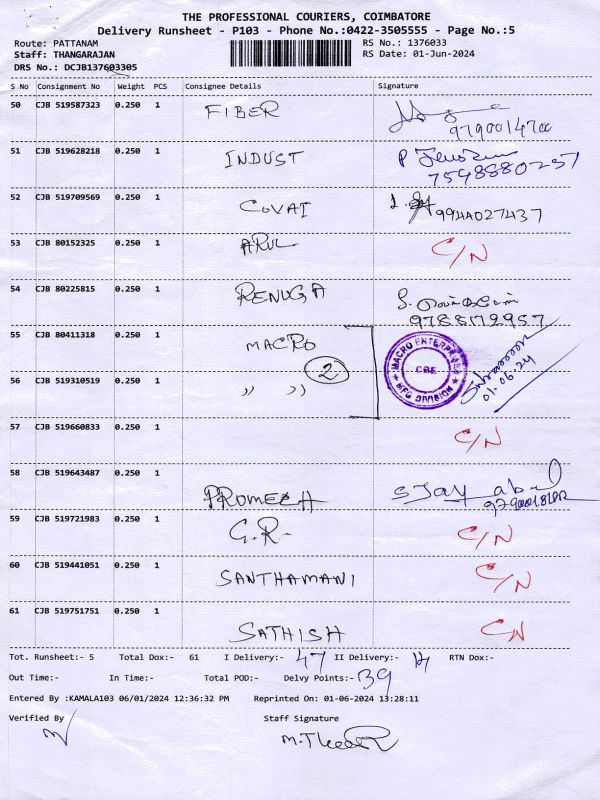 THE PROFESSIONAL COURIERS, COIMBATORE
Delivery Runsheet - P103 - Phone No.:0422-3505555 - Page No.:5
Route: PATTANAM
RS No.: 1376033
Staff: THANGARAJAN
RS Date: 01-Jun-2024
DRS No.: DCJB137603305
S No Consignment No Weight PCS Consignee Details Signature
50 CJB 519587323 0.250 1 FIBER
9790014700
51 CJB 519628218 0.250 1 INDUST
7598880257
52 CJB 519709569 0.250 1 COVAI 9944027437
53 CJB 80152325 0.250 1 ARUL C/N
54 CJB 80225815 0.250 1 RENUGA
9788172957
55 CJB 80411318 0.250 1 MACRO
2
MACRO ENTERPRISES
CBE
MFG DIVISION
01.06.24
56 CJB 519310519 0.250 1 ,, ,,
57 CJB 519660833 0.250 1 C/N
58 CJB 519643487 0.250 1 PROMECH
59 CJB 519721983 0.250 1 G.R- C/N
60 CJB 519441051 0.250 1 SANTHAMANI C/N
61 CJB 519751751 0.250 1 SATHISH C/N
Tot. Runsheet:- 5 Total Dox:- 61 I Delivery:- 47 II Delivery:- 14 RTN Dox:-
Out Time:- In Time:- Total POD:- Delvy Points:- 39
Entered By :KAMALA103 06/01/2024 12:36:32 PM Reprinted On: 01-06-2024 13:28:11
Verified By Staff Signature